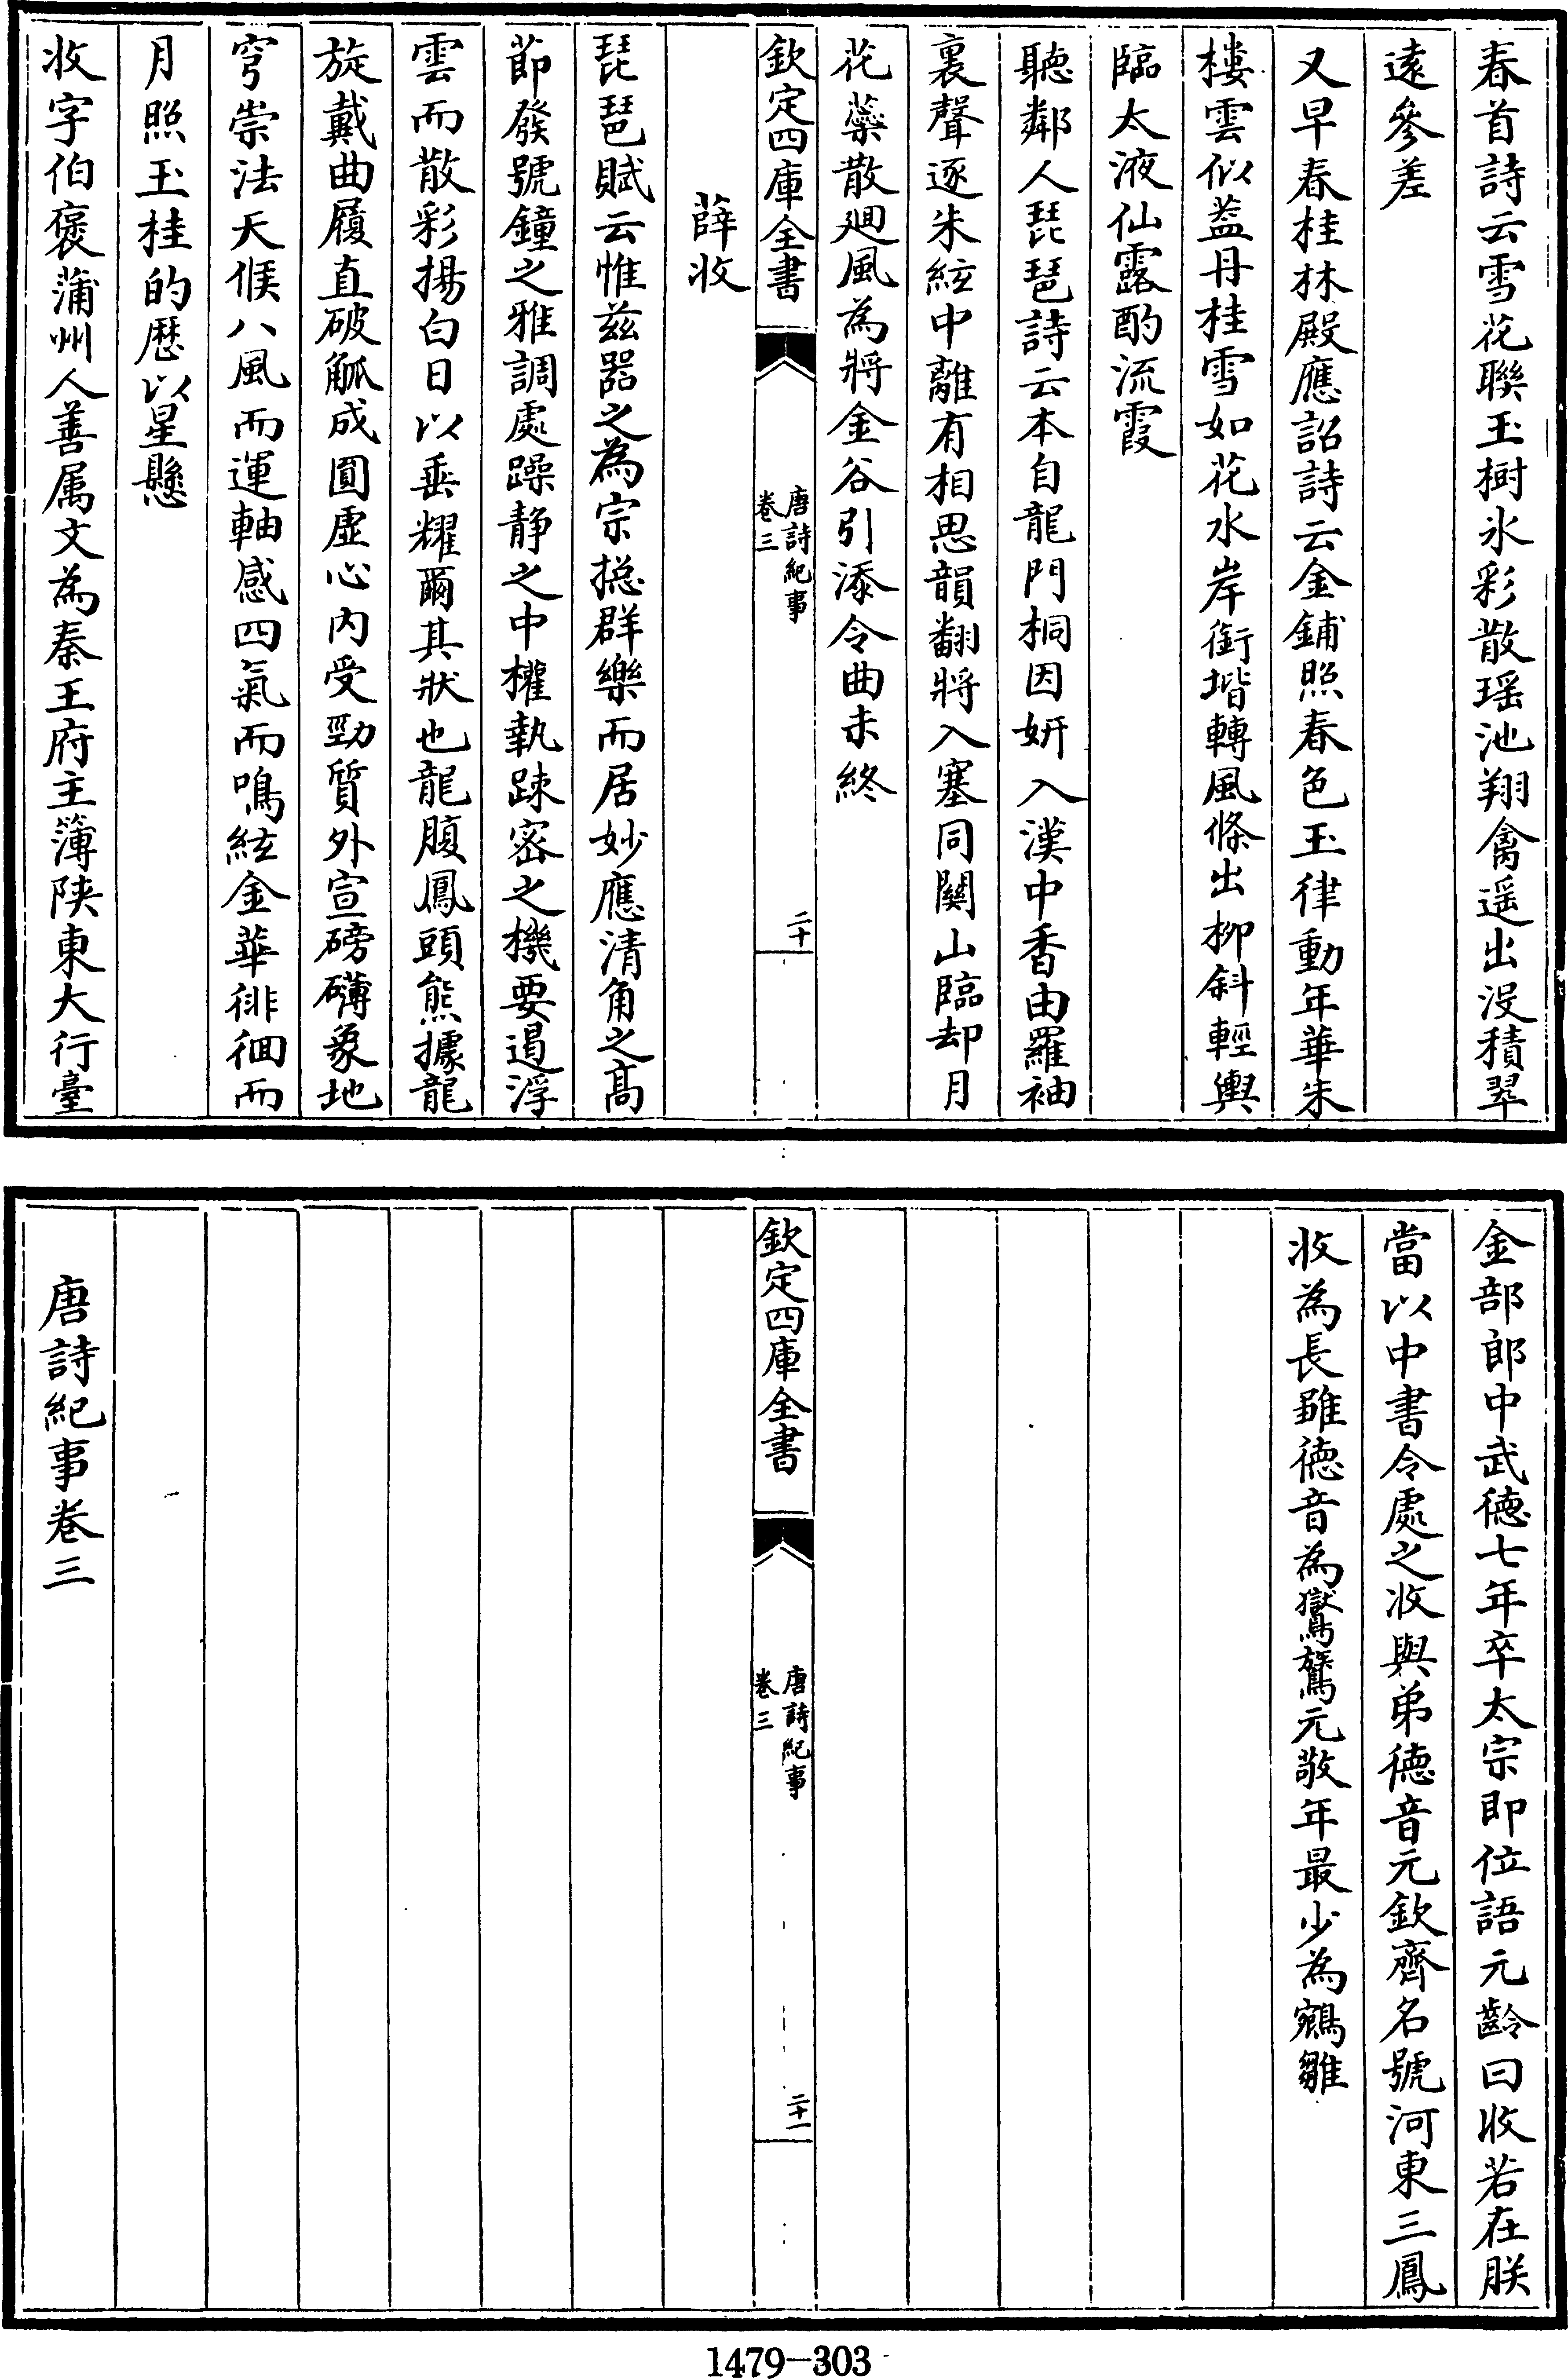 春首詩云雪花聯玉樹氷彩散瑶池翔禽遥出没積翠
遠參差
又早春桂林殿應詔詩云金鋪照春色玉律動年華朱
樓雲似蓋丹桂雪如花水岸銜堦轉風條出栁斜輕輿
臨太液仙露酌流霞
聽鄰人琵琶詩云本自龍門桐因妍入漢中香由羅袖
裏聲逐朱絃中離有相思韻翻將入塞同關山臨却月
花蘂散迴風為將金谷引添令曲未終
欽定四庫全書
唐詩紀事
卷三
二十
薛收
琵琶賦云惟兹器之為宗揔群樂而居妙應清角之高
節發號鐘之雅調處躁静之中權執踈密之機要遏浮
雲而散彩揚白日以垂耀爾其狀也龍腹鳳頭熊據龍
旋戴曲履直破觚成圓虛心内受勁質外宣磅礴象地
穹崇法天候八風而運軸感四氣而鳴絃金華徘徊而
月照玉桂的歴以星懸
收字伯褒蒲州人善属文為秦王府主簿陜東大行臺
金部郎中武德七年卒太宗即位語元齡曰收若在朕
當以中書令處之收與弟德音元欽齊名號河東三鳳
收為長雖德音為鸑鷟元敬年最少為鵷雛
欽定四庫全書
唐詩紀事
卷三
二十一
唐詩紀事卷三
1479-303